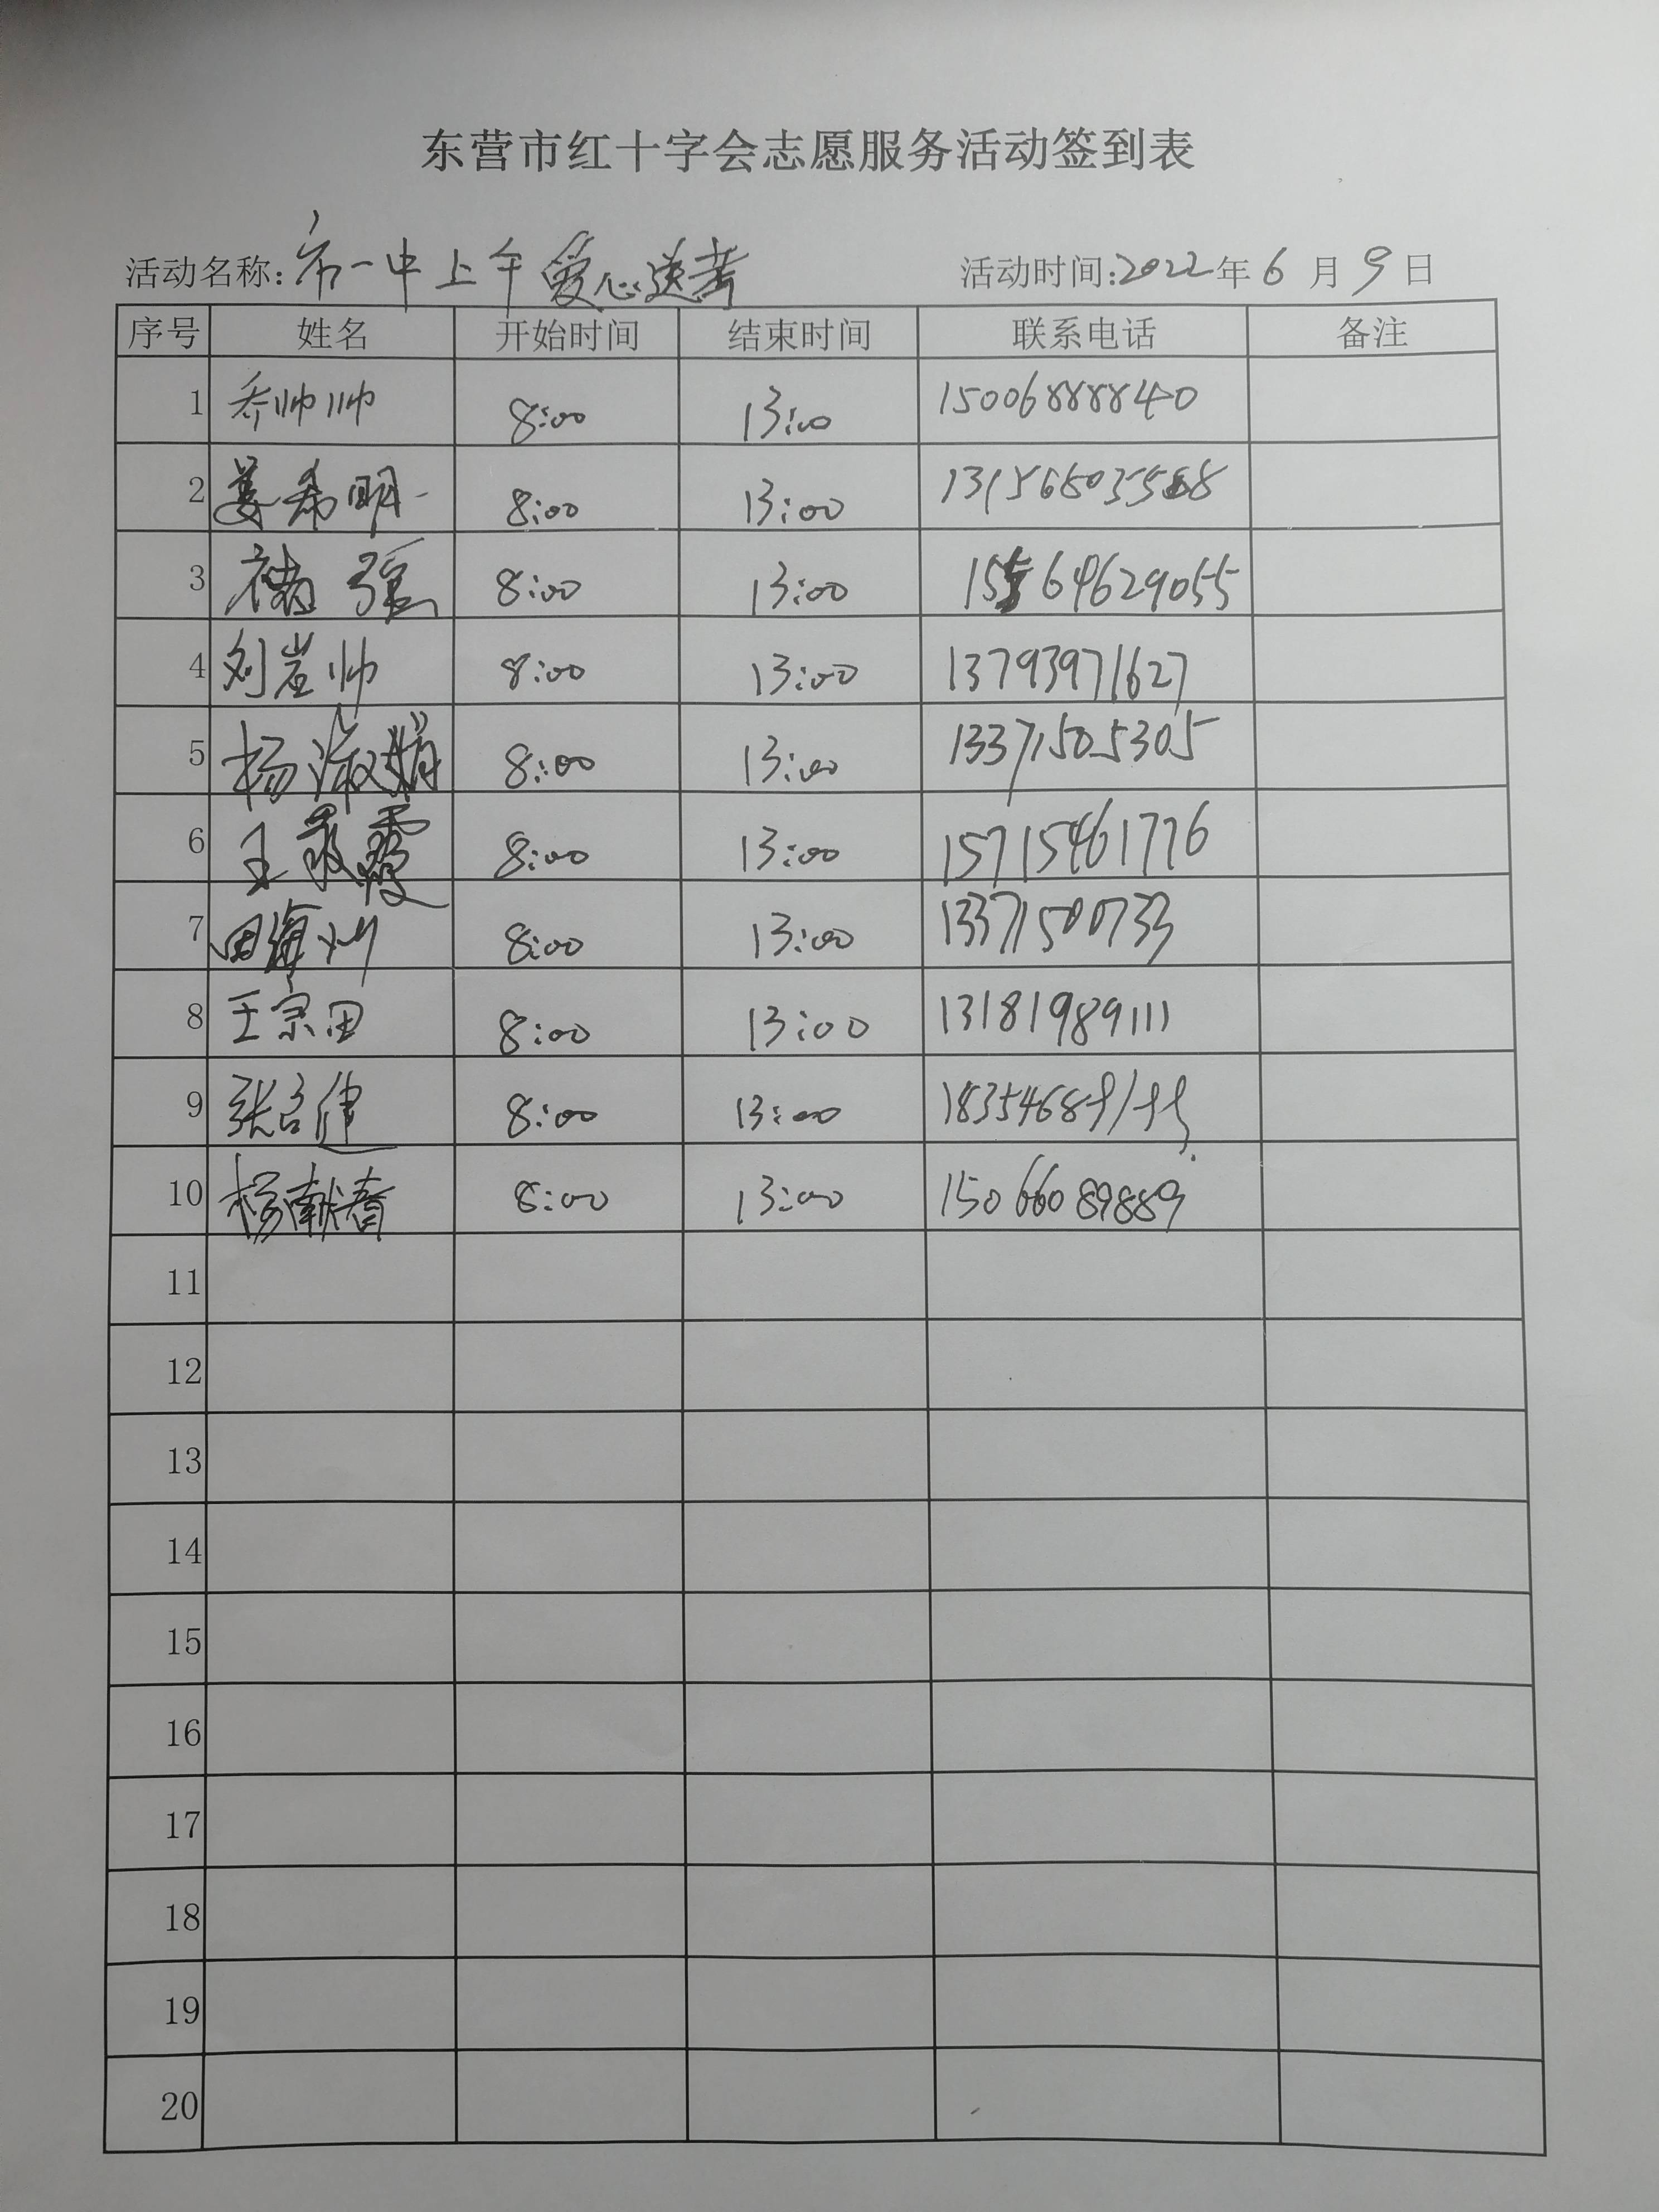 东营市红十字会志愿服务活动签到表
活动名称:市一中上午爱心送考 活动时间:2022年6月9日
序号 姓名 开始时间 结束时间 联系电话 备注
1 乔帅帅 8:00 13:00 15006888840
2 姜希明 8:00 13:00
3 褚强 8:00 13:00 15564629055
4 刘岩帅 8:00 13:00 13793971627
5 杨淑娟 8:00 13:00 13371505305
6 王霞 8:00 13:00 15715461776
7 田海州 8:00 13:00 13371500733
8 王宗田 8:00 13:00 13181989111
9 张 8:00 13:00
10 杨献春 8:00 13:00 15066089889
11
12
13
14
15
16
17
18
19
20